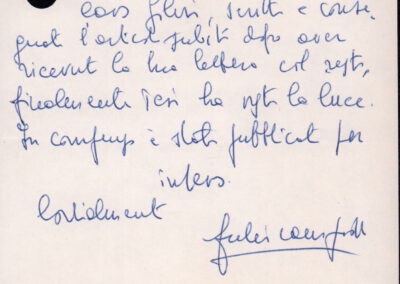 caro Filesi, scritto e conse-
gnato l'articolo subito dopo aver
ricevuto la tua lettera col
finalmente ieri ha visto la luce.
In compenso è stato pubblicato per
intero.
Cordialmente